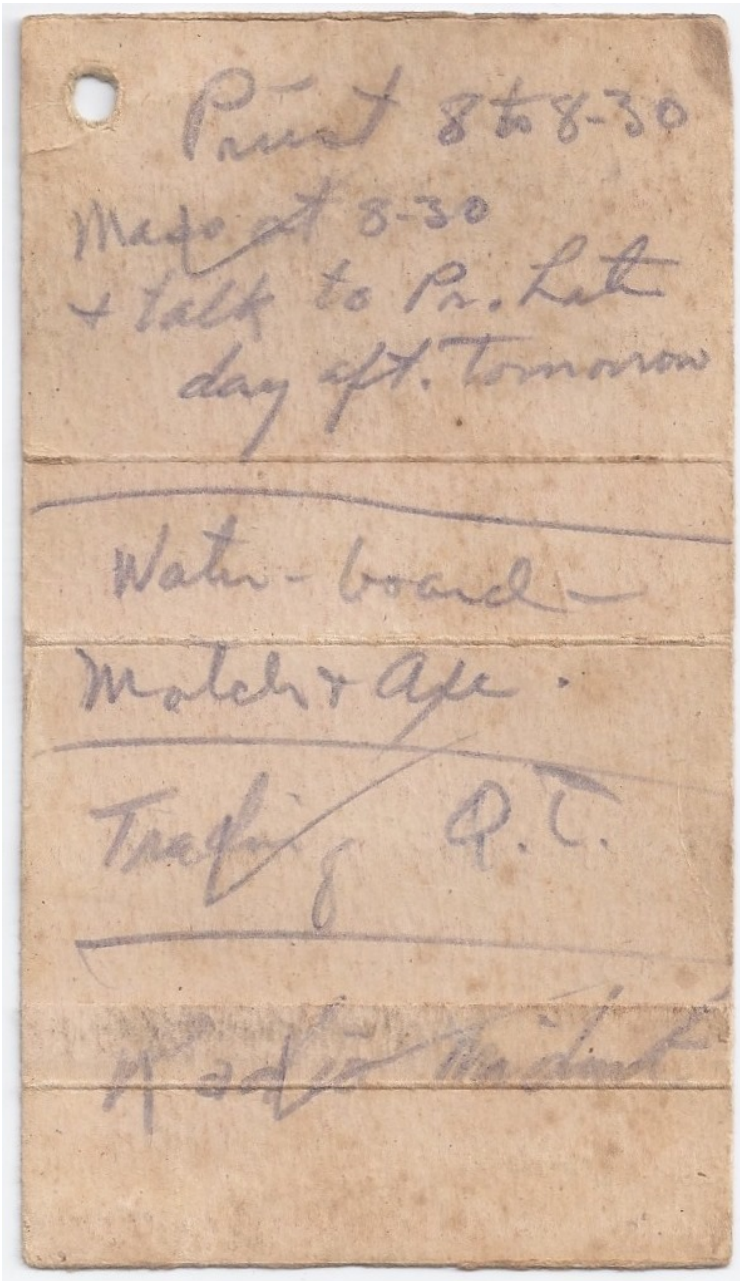 Priest 8 to 8-30
Mass at 8-30
+ talk to Pr. Lat
day aft. Tomorrow
Water-board-
Match + Axe.
Q.T.
Radio